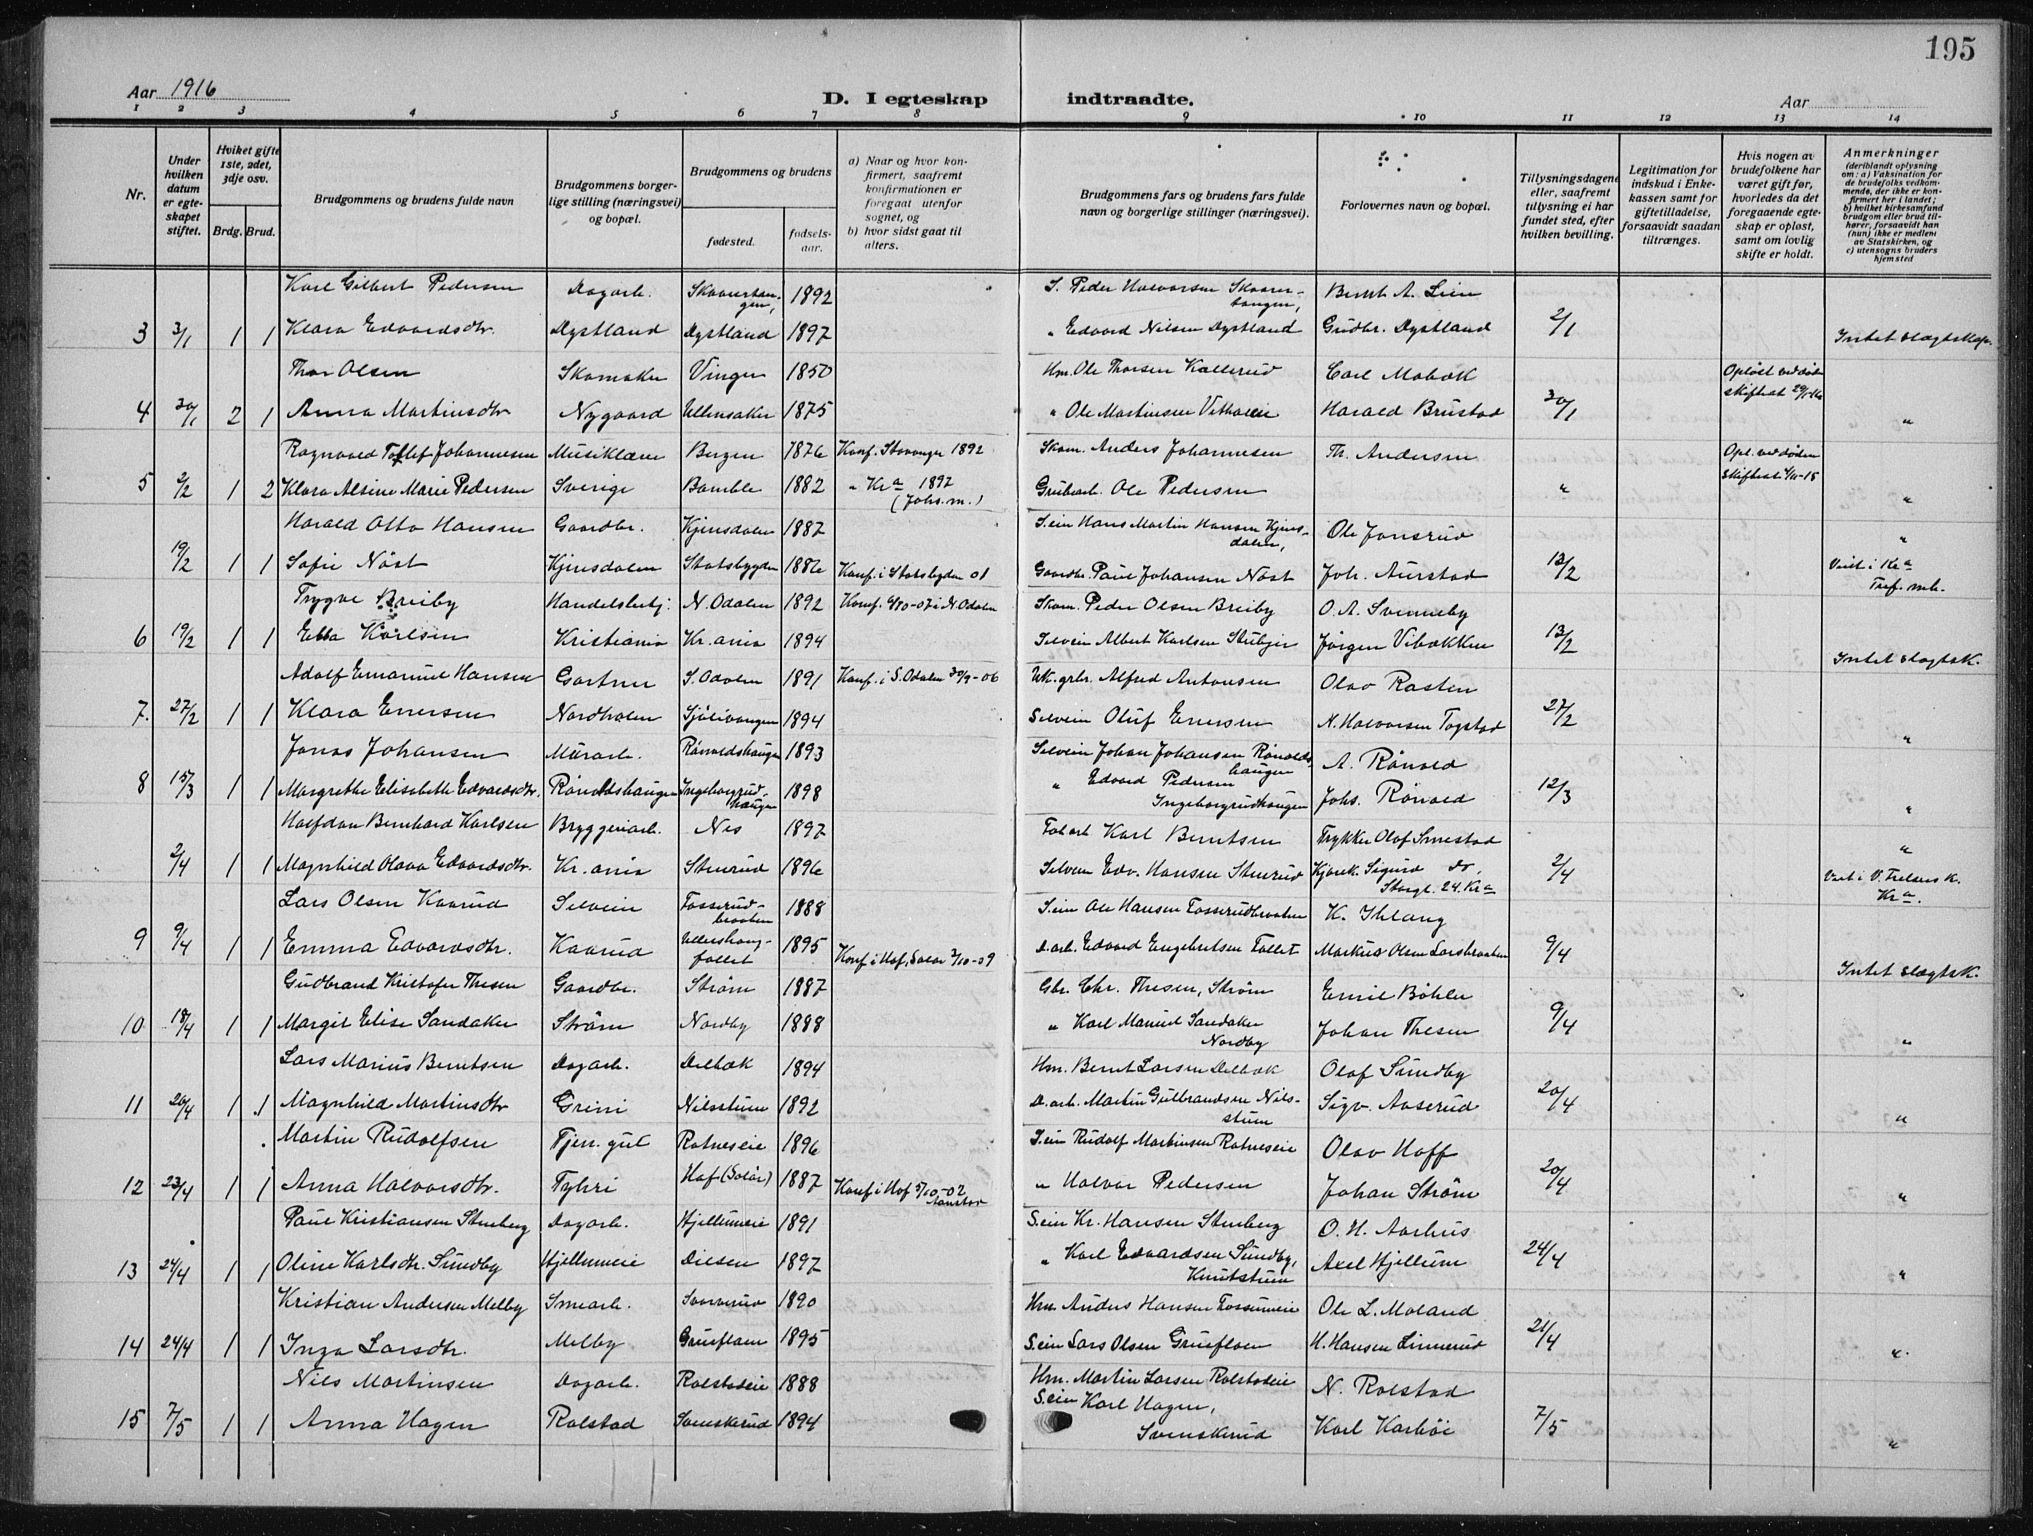 195
Aar 1916
D. I egteskap indtraadte.
Aar
1 2 3 4 5 6 7 8 9 10 11 12 13 14
Nr.
Under hvilken datum er egteskapet stiftet.
Hviket gifte 1ste, 2det, 3dje osv.
Brdg. Brud.
Brudgommens og brudens fulde navn
Brudgommens borgerlige stilling (næringsvei) og bopæl.
Brudgommens og brudens
fødested.
fødselsaar.
a) Naar og hvor konfirmert, saafremt konfirmationen er foregaat utenfor sognet, og
b) hvor sidst gaat til alters.
Brudgommens fars og brudens fars fulde navn og borgerlige stillinger (næringsvei).
Forlovernes navn og bopæl.
Tillysningsdagene eller, saafremt tillysning ei har fundet sted, efter hvilken bevilling.
Legitimation for indskud i Enkekassen samt for giftetilladelse, forsaavidt saadan tiltrænges.
Hvis nogen av brudefolkene har været gift før, hvorledes da det foregaaende egteskap er opløst, samt om lovlig skifte er holdt.
Anmerkninger
(deriblandt oplysning om: a) Vaksination for de brudefolks vedkommende, der ikke er konfirmert her i landet; b) hvilket kirkesamfund brudgom eller brud tilhører, forsaavidt han (hun) ikke er medlem av Statskirken, og c) utensogns bruders hjemsted
Karl Gilbert Pedersen Dagarb. 1892 S. Peder Halvorsen Bernt A. Lien
3 3/1 1 1 Klara Edvardsdtr. Dystland Dystland 1897 " Edvard Nilsen Dystland Gudbr. Dystland 2/1 Intet slagtskap.
Thor Olsen Skomaker Vinger 1850 Hm. Ole Thorsen Kallerud Carl Mobæk Opløst ved døden
4 30/1 2 1 Anna Martinsdtr Nygaard Ullensaker 1875 " Ole Martinsen Harald Brustad 30/1 "
Ragnvald Johannesen Musiklærer Bergen 1876 Konf. Stavanger 1892 Skom. Anders Johannesen Th. Andersen Opl. ved døden
5 2/2 1 2 Klara Alsine Marie Pedersen Sverige Bamble 1882 " Kra 1897 (Johs. m.) Grubearb. Ole Pedersen " "
Harald Otto Hansen Gaardbr. Kjensdalen 1887 S.eier Hans Martin Hansen Kjensdalen, Ole Jonsrud "
19/2 1 1 Sofie Nøst Kjensdalen Statsbygden 1886 Konf. i Statsbygden 01 Gaardbr. Paul Johansen Nøst Joh. Aurstad 13/2 Viet i Kra
Trygve Breiby Handelsbetj. N. Odalen 1892 Konf. 6/10-07 i N. Odalen Skom. Peder Olsen Breiby O. A. Svenneby
6 19/2 1 1 Ebba Karlsen Kristiania Kr.ania 1894 Selveier Albert Karlsen Jørgen Vibækken 13/2 Intet slagtsk.
Adolf Emanuel Hansen Gartner S. Odalen 1891 Konf. i S. Odalen 30/9-06 Alfred Antonsen Olav Rasten
7. 27/2 1 1 Klara Enersen Nordhalen Sjølivangen 1894 Selveier Oluf Enersen N. Halvorsen Togstad 27/2 "
Jonas Johansen Murarb. Rønoldshaugen 1893 Selveier Johan Johansen Rønoldshaugen A. Rønold
8 15/3 1 1 Margrethe Elisabeth Edvardsdtr. Rønoldshaugen Ingeborgrudhaugen 1898 " Edvard Pedersen Ingeborgrudhaugen Johs. Rønold 12/3 "
Halfdan Bernhard Karlsen Bryggeriarb. Nes 1897 Fab.arb. Karl Berntsen Trykker Olaf Smestad "
2/4 1 1 Magnhild Olava Edvardsdtr. Kr.ania Stenrud 1896 Selveier Edv. Hansen Stenrud Sigurd do, Storgt. 24. Kra 2/4 Viet i V. Frelsers k. Kra.
Lars Olsen Kaarud Selveier Fosserudbraaten 1888 S.eier Ole Hansen Fosserudbraaten K. Ihlang
9 9/4 1 1 Emma Edvardsdtr. Kaarud 1895 Konf i Hof, Solør 3/10-09 D.arb. Edvard Engebretsen Fallet Markus Olsen Larsbraaten 9/4 Intet slagtsk.
Gudbrand Kristofer Thesen Gaardbr. Strøm 1887 Gbr. Chr. Thesen, Strøm Emil Bøhler
10 18/4 1 1 Margit Elise Sandaker Strøm Nordby 1888 " Karl Manuel Sandaker Nordby Johan Thesen 9/4 "
Lars Marius Berntsen Dagarb. Delbæk 1894 Hm. Bernt Larsen Delbæk Olaf Sundby
11 26/4 1 1 Magnhild Martinsdtr Grini Nilsstuen 1892 D.arb. Martin Gulbrandsen Nilsstuen Sigv. Aaserud 20/4 "
Martin Rudolfsen Tjen.gut Ratneseie 1896 S.eier Rudolf Martinsen Ratneseie Olav Hoff
12 23/4 1 1 Anna Halvorsdtr. Tyhri Hof (Solør) 1887 Konf i Hof 5/10-02 " Halvor Pedersen Johan Strøm 20/4 "
Paul Kristiansen Stenberg Dagarb. Hjellumeie 1891 S.eier Kr. Hansen Stenberg O. H. Aarhus
13 24/4 1 1 Oline Karlsdtr. Sundby Hjellumeie Diesen 1897 " Karl Edvardsen Sundby, Knutstuen Axel Hjellum 24/4 "
Kristian Andersen Melby Smearb. 1890 Hm. Anders Hansen Fossumeie Ole L. Moland
14 24/4 1 1 Inga Larsdtr. Melby Grueflaen 1895 S.eier Lars Olsen Grueflaen H. Hansen Linnerud 21/4 "
Nils Martinsen Dagarb. Rolstadeie 1888 Hm. Martin Larsen Rolstadeie N. Rolstad
15 7/5 1 1 Anna Hagen Rolstad Svenskerud 1894 S.eier Karl Hagen, Svenskerud Karl Karbøi 7/5 "